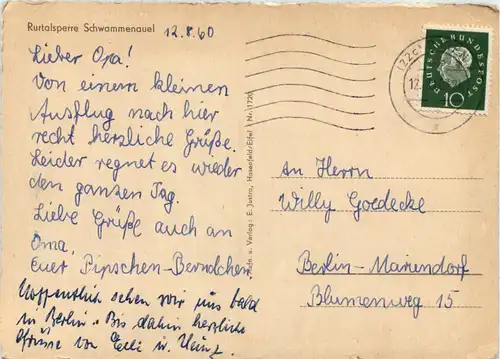 Rurtalsperre Schwammenauel
12.8.60
Lieber Opa!
Von einem kleinen
Ausflug nach hier
recht herzliche Grüße.
Leider regnet es wieder
den ganzen Tag.
Liebe Grüße auch an
Oma,
Euer Pipschen-Berndchen
Hoffentlich sehen wir uns bald
in Berlin. Bis dahin herzliche
Grüsse von u. Heinz.
Aufn. u. Verlag: E. Justra, Hasenfeld/Eifel (Nr. 172)
DEUTSCHE BUNDESPOST
10
(22c)
12.
An Herrn
Willy Goedecke
Berlin-Mariendorf
Blumenweg 15